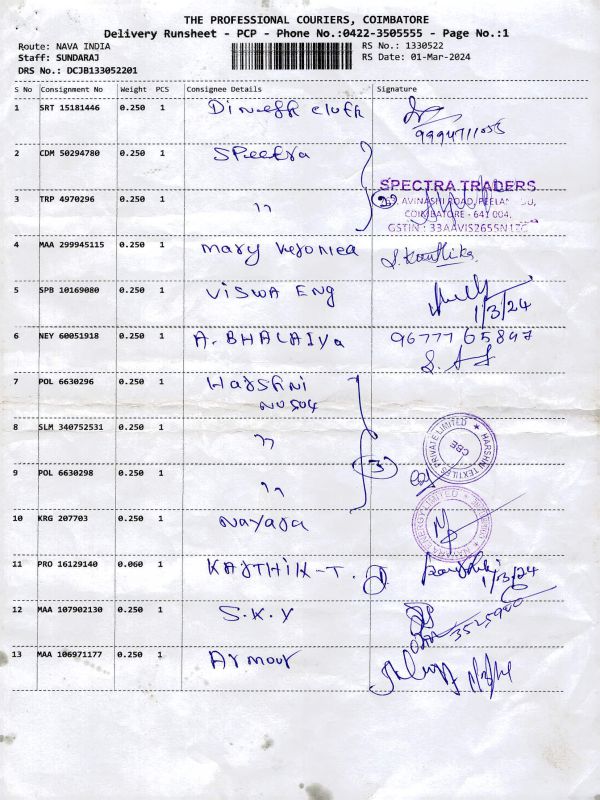 THE PROFESSIONAL COURIERS, COIMBATORE
Delivery Runsheet - PCP - Phone No.:0422-3505555 - Page No.:1
Route: NAVA INDIA
Staff: SUNDARAJ
DRS No.: DCJB133052201
RS No.: 1330522
RS Date: 01-Mar-2024
S No Consignment No Weight PCS Consignee Details Signature
1 SRT 15181446 0.250 1
2 CDM 50294780 0.250 1 Spectra
SPECTRA TRADERS
AVINASHI ROAD, PEELAMEDU,
COIMBATORE - 641 004.
GSTIN : 33AAVIS2655N1ZC
3 TRP 4970296 0.250 1 ,, 2
4 MAA 299945115 0.250 1 Mary S. Karthika
5 SPB 10169080 0.250 1 VISWA ENG
1/3/24
6 NEY 60051918 0.250 1 A. BHALAIYa 9677765847
7 POL 6630296 0.250 1 Harshni
NO504
8 SLM 340752531 0.250 1 ,,
HARSHNI TEXTILES PRIVATE LIMITED
CBE
9 POL 6630298 0.250 1 ,, 3
10 KRG 207703 0.250 1 Nayara
ENERGY LIMITED
11 PRO 16129140 0.060 1 KARTHIK-T. 1
1/3/24
12 MAA 107902130 0.250 1 S.K.Y
13 MAA 106971177 0.250 1 Armour